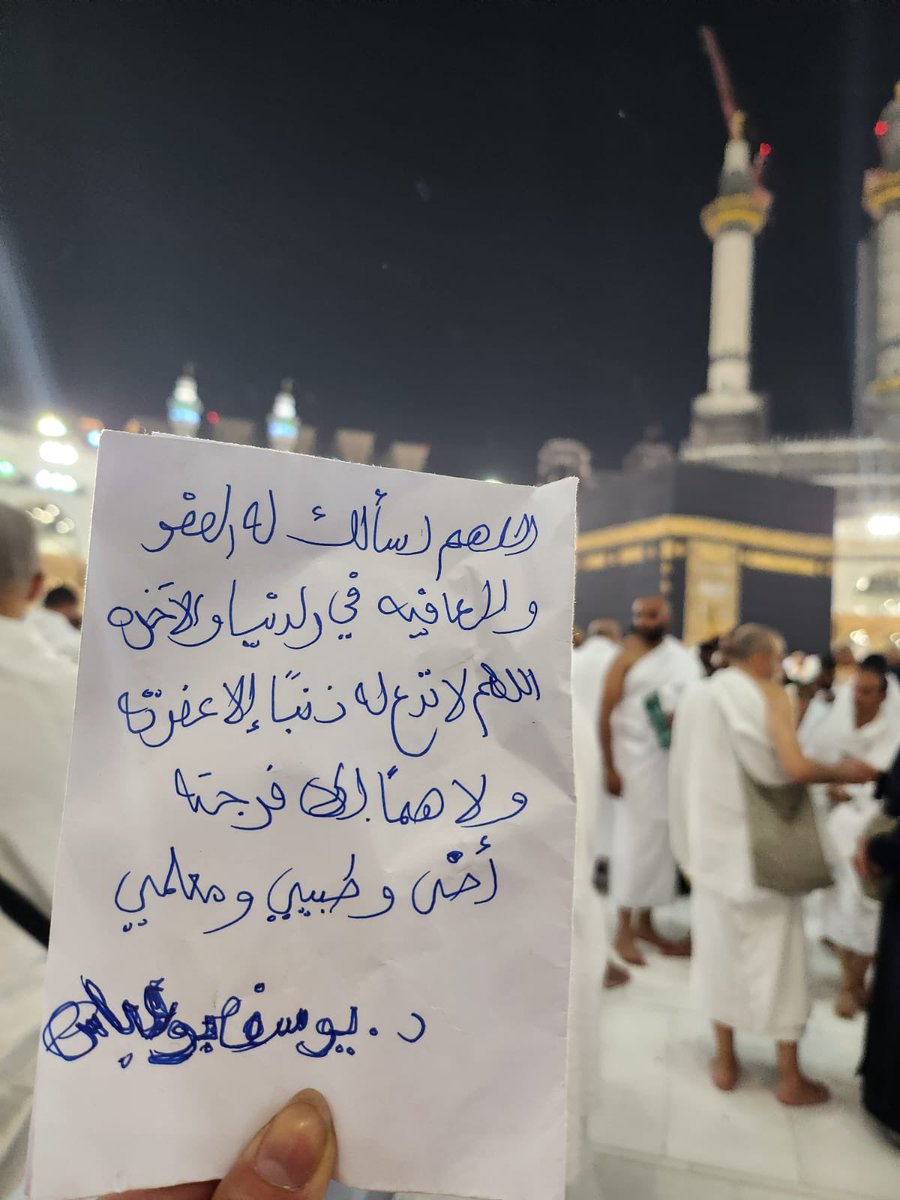 اللهم اسألك له العفو
والعافيه في الدنيا والآخره
اللهم لا تدع له ذنبًا إلا غفرته
ولا همًا إلا فرجته
أخي وطبيبي ومعلمي
د. يوسف